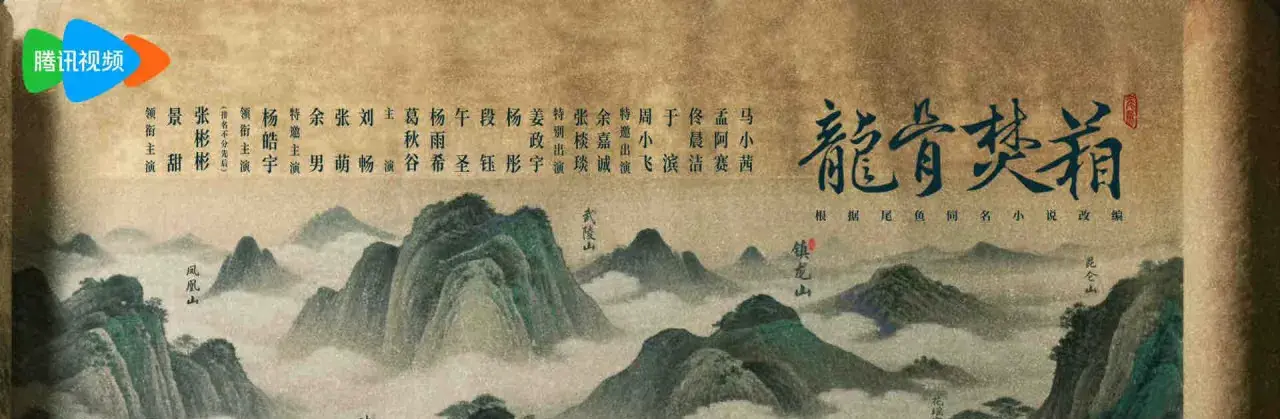 腾讯视频
领衔主演
景甜
张彬彬
(排名不分先后)
领衔主演
杨皓宇
特邀主演
余男
张萌
刘畅
主演
葛秋谷
杨雨希
午圣
段钰
杨彤
姜政宇
特别出演
张棪琰
余嘉诚
特邀出演
周小飞
于滨
佟晨洁
孟阿赛
马小茜
龍骨焚箱
根据尾鱼同名小说改编
凤凰山
武陵山
镇龙山
昆仑山